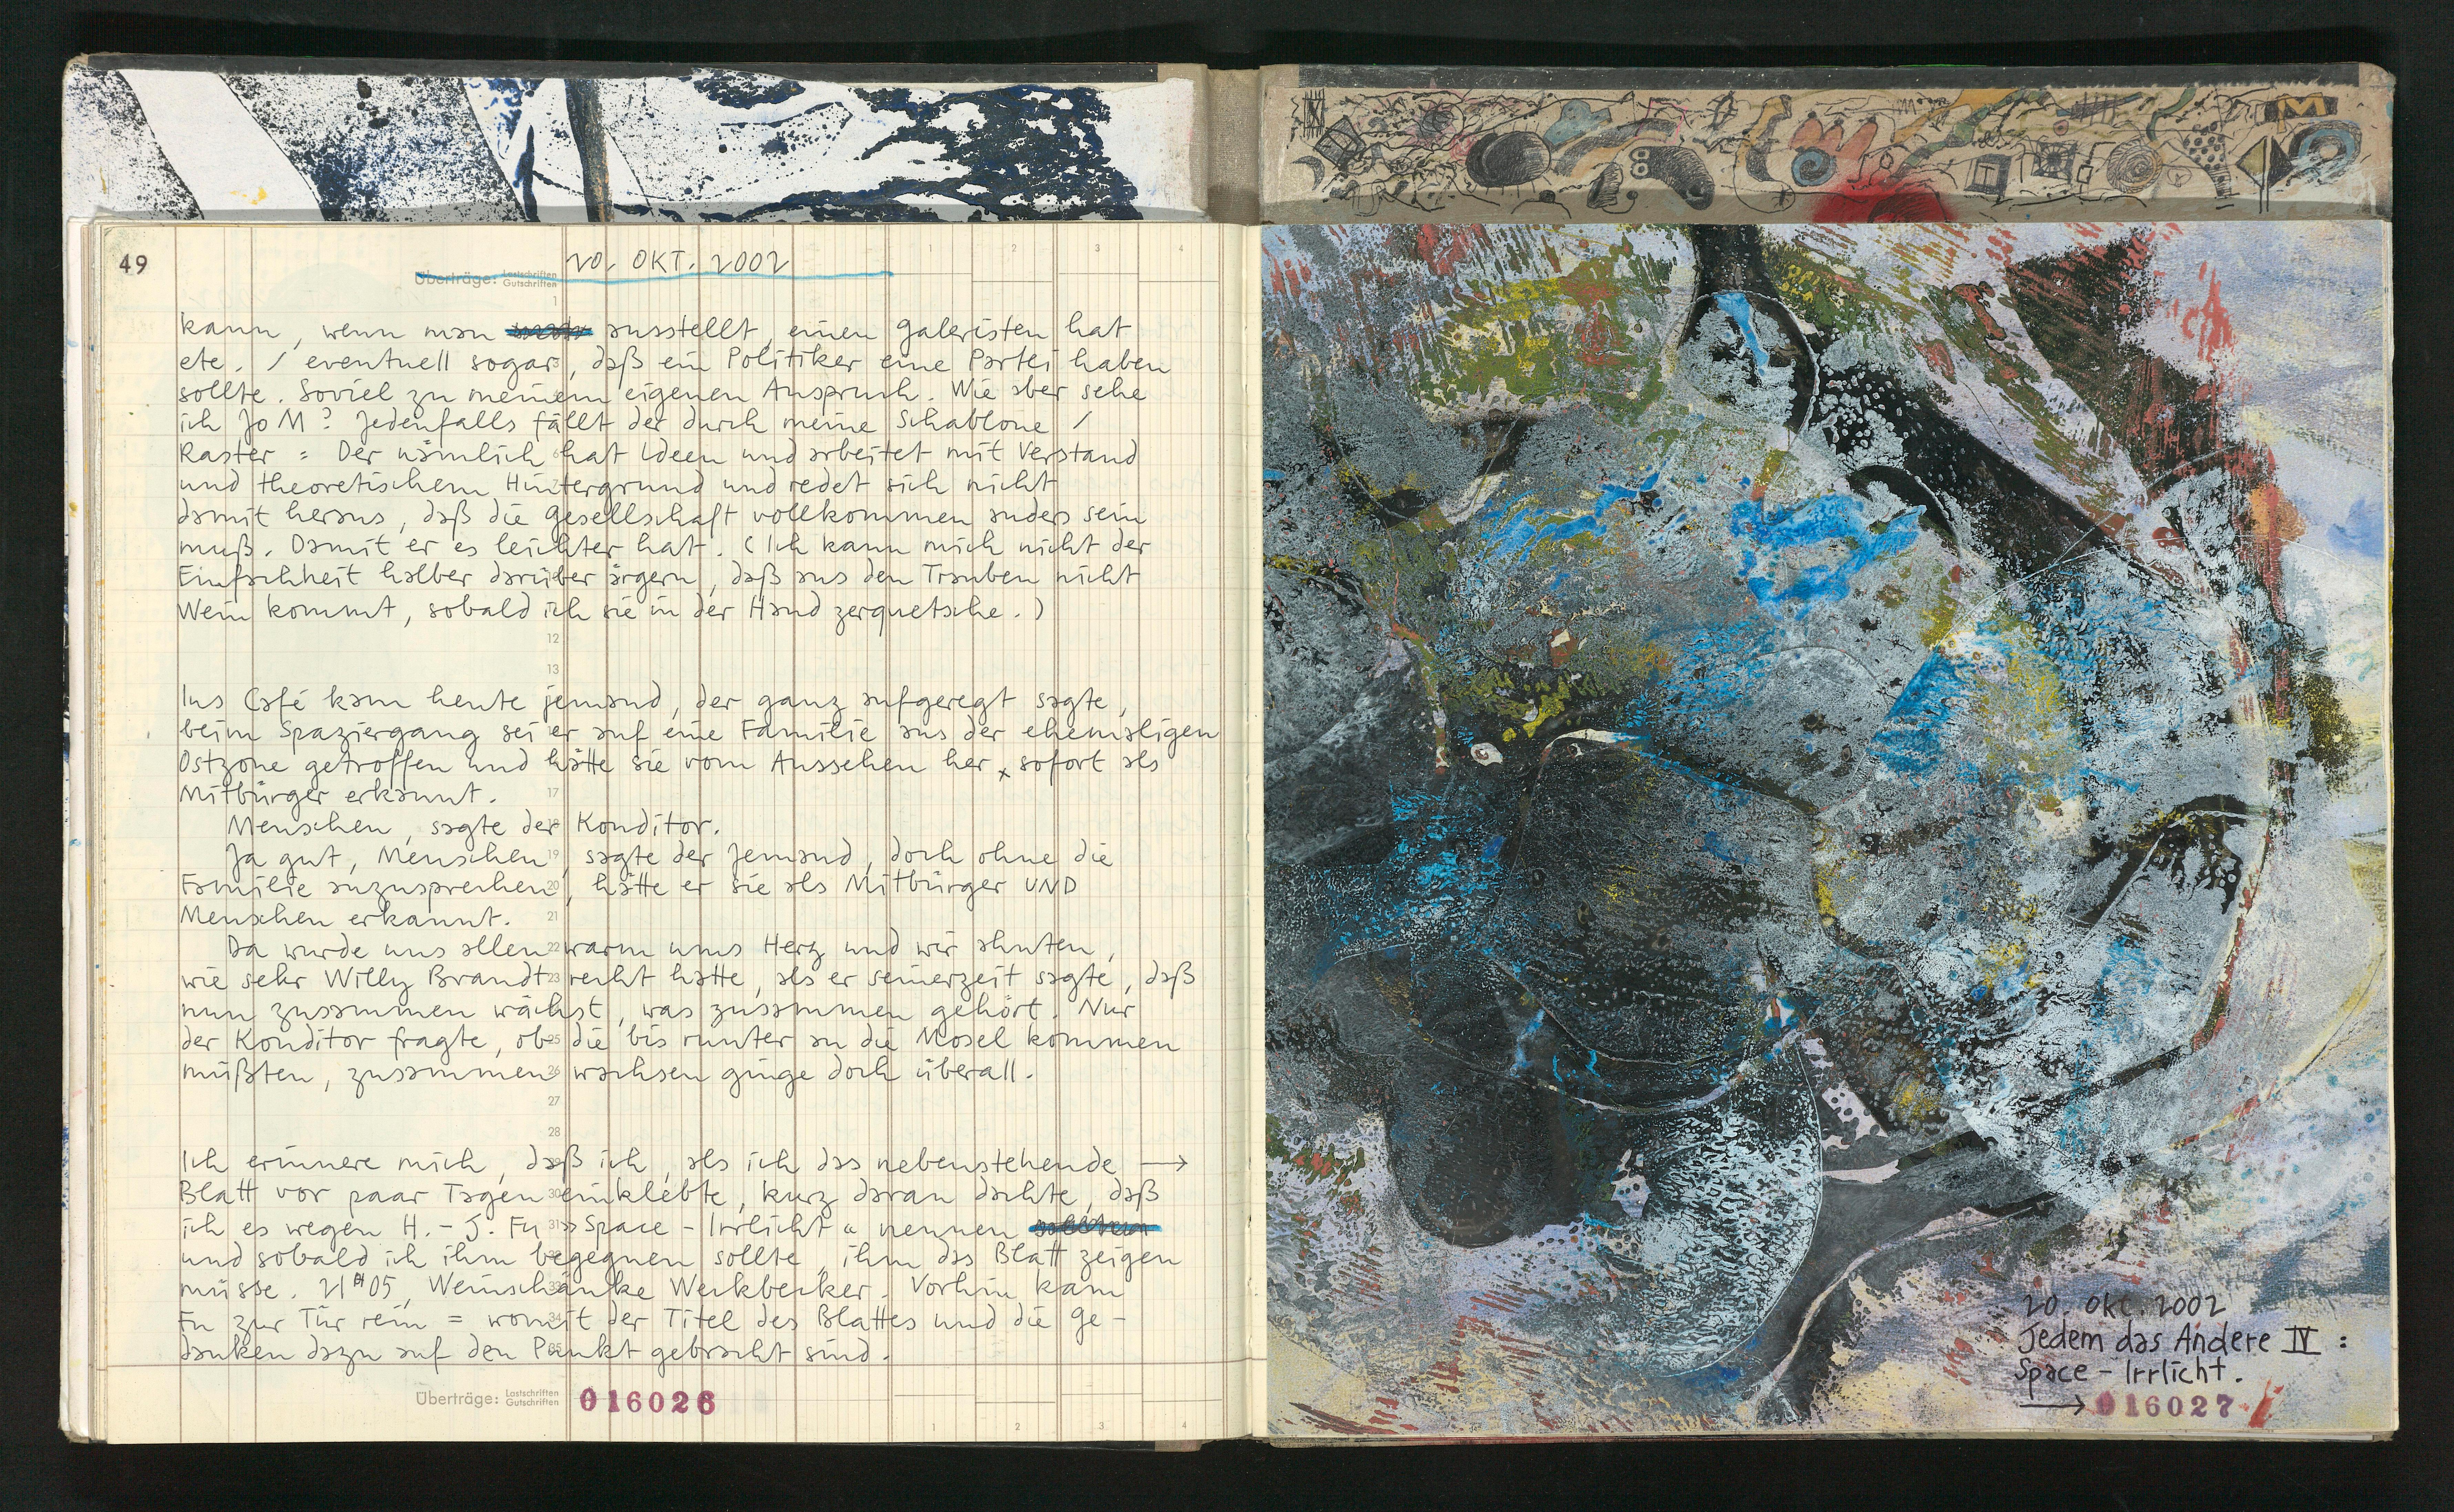 49
20. OKT. 2002
Überträge: Lastschriften Gutschriften
1 2 3 4
1
kann, wenn man ausstellt, einen Galeristen hat
etc. / eventuell sogar, daß ein Politiker eine Partei haben
sollte. Soviel zu meinem eigenen Anspruch. Wie aber sehe
ich Jo M? Jedenfalls fällt der durch meine Schablone /
Raster = Der nämlich hat Ideen und arbeitet mit Verstand
und theoretischem Hintergrund und redet sich nicht
damit heraus, daß die Gesellschaft vollkommen anders sein
muß. Damit er es leichter hat. (Ich kann mich nicht der
Einfachheit halber darüber ärgern, daß aus den Trauben nicht
Wein kommt, sobald ich sie in der Hand zerquetsche.)
12
13
Ins Café kam heute jemand, der ganz aufgeregt sagte,
beim Spaziergang sei er auf eine Familie aus der ehemaligen
Ostzone getroffen und hätte sie vom Aussehen her x sofort als
Mitbürger erkannt. 17
Menschen, sagte der Konditor.
Ja gut, Menschen, 19 sagte der Jemand, doch ohne die
Familie anzusprechen 20, hätte er sie als Mitbürger UND
Menschen erkannt. 21
Da wurde uns allen 22 warm ums Herz und wir ahnten,
wie sehr Willy Brandt 23 recht hatte, als er seinerzeit sagte, daß
nun zusammen wächst, was zusammen gehört. Nur
der Konditor fragte, ob 25 die bis runter an die Mosel kommen
müßten, zusammen 26 wachsen ginge doch überall.
27
28
Ich erinnere mich, daß ich, als ich das nebenstehende →
Blatt vor paar Tagen 30 einklebte, kurz daran dachte, daß
ich es wegen H.-J. Fu 31 »Space-Irrlicht« nennen
und sobald ich ihm begegnen sollte, ihm das Blatt zeigen
müsse. 21H05, Weinschänke Weckbecker. Vorhin kam
Fu zur Tür rein = womit der Titel des Blattes und die Ge-
danken dazu auf den Punkt gebracht sind.
Überträge: Lastschriften Gutschriften 016026
1 2 3 4
M
20. Okt. 2002
Jedem das Andere IV :
Space-Irrlicht.
→ 016027